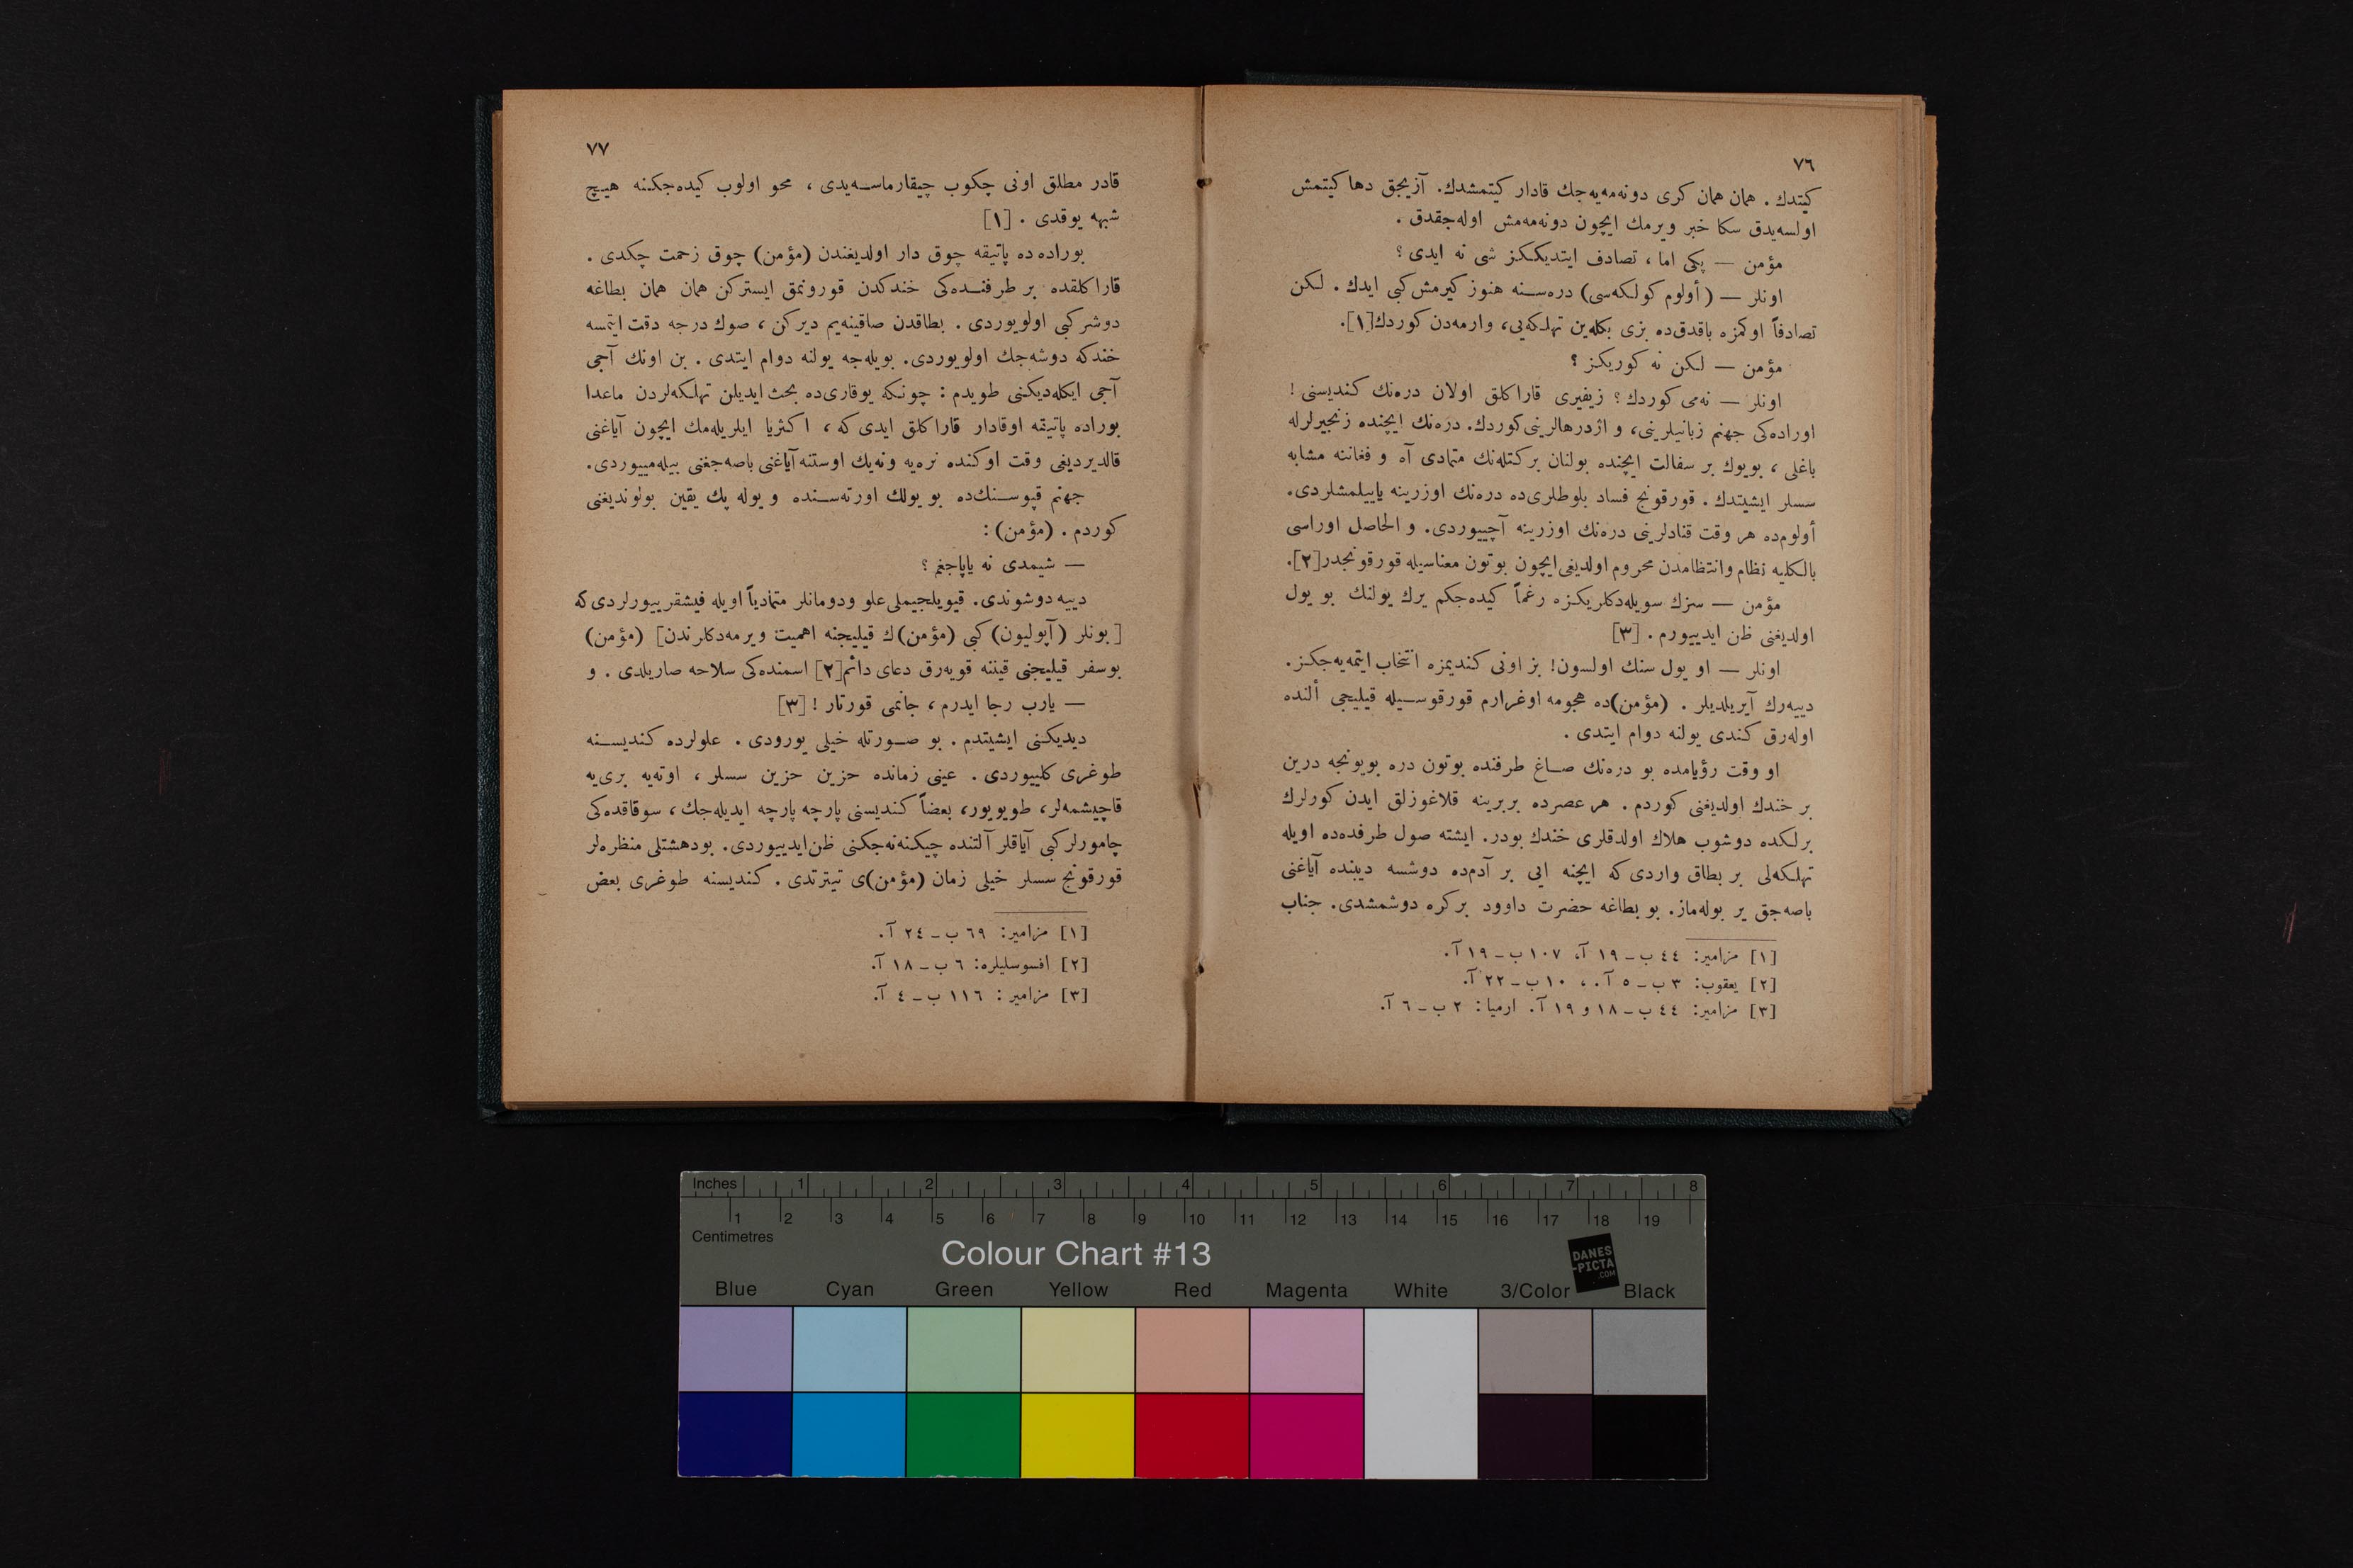 ٧٦
كيتدك . همان همان كرى دونه‌مه‌يه‌جك قادار كيتمشدك. آزيجق دها كيتمش
اولسه‌يدق سكا خبر ويرمك ايچون دونه‌مه‌مش اوله‌جقدق .
مؤمن — پكى اما ، تصادف ايتديككز شى نه ايدى ؟
اونلر — (أولوم كولكه‌سى) دره‌سنه هنوز كيرمش كبى ايدك . لكن
تصادفاً اوكمزه باقدق‌ده بزى بكله‌ين تهلكه‌يى، وارمه‌دن كوردك[١].
مؤمن — لكن نه كوريكز ؟
اونلر — نه‌مى كوردك ؟ زيفيرى قاراكلق اولان دره‌نك كنديسنى !
اوراده‌كى جهنم زبانيلرينى، و اژدرهالرينى كوردك. دره‌نك ايچنده زنجيرلرله
باغلى ، بويوك بر سفالت ايچنده بولنان بر كتله‌نك متمادى آه و فغاننه مشابه
سسلر ايشيتدك . قورقونج فساد بلوطلرى‌ده دره‌نك اوزرينه ياييلمشلردى.
أولوم‌ده هر وقت قنادلرينى دره‌نك اوزرينه آچييوردى. و الحاصل اوراسى
بالكليه نظام وانتظامدن محروم اولديغى ايچون بوتون معناسيله قورقونجدر[٢].
مؤمن — سزك سويله‌دكلريكزه رغماً كيده‌جكم يرك يولنك بو يول
اولديغنى ظن ايدييورم . [٣]
اونلر — او يول سنك اولسون! بز اونى كنديمزه انتخاب ايتمه‌يه‌جكز.
دييه‌رك آيريلديلر . (مؤمن)ده هجومه اوغرارم قورقوسيله قيليجى ألنده
اوله‌رق كندى يولنه دوام ايتدى .
او وقت رؤيامده بو دره‌نك صاغ طرفنده بوتون دره بويونجه درين
بر خندك اولديغنى كوردم . هر عصرده بربرينه قلاغوزلق ايدن كورلرك
برلكده دوشوب هلاك اولدقلرى خندك بودر. ايشته صول طرفده‌ده اويله
تهلكه‌لى بر بطاق واردى كه ايچنه ايى بر آدم‌ده دوشسه ديبنده آياغنى
باصه‌جق ير بوله‌ماز. بو بطاغه حضرت داوود بر كره دوشمشدى. جناب
[١] مزامير: ٤٤ ب ـ ١٩ آ، ١٠٧ ب ـ ١٩ آ.
[٢] يعقوب: ٣ ب ـ ٥ آ. ، ١٠ ب ـ ٢٢ آ.
[٣] مزامير: ٤٤ ب ـ ١٨ و ١٩ آ. ارميا: ٢ ب ـ ٦ آ.
٧٧
قادر مطلق اونى چكوب چيقارماسه‌يدى ، محو اولوب كيده‌جكننه هيچ
شبهه يوقدى . [١]
بوراده ده پاتيقه چوق دار اولديغندن (مؤمن) چوق زحمت چكدى .
قاراكلقده بر طرفنده‌كى خندكدن قورونمق ايستركن همان همان بطاغه
دوشر كبى اولويوردى . بطاقدن صاقينه‌يم ديركن ، صوك درجه دقت ايتمسه
خندكه دوشه‌جك اولويوردى. بويله‌جه يولنه دوام ايتدى . بن اونك آجى
آجى ايكله‌ديكنى طويدم : چونكه يوقارى‌ده بحث ايديلن تهلكه‌لردن ماعدا
بوراده پاتيقه اوقادار قاراكلق ايدى كه ، اكثريا ايلريله‌مك ايچون آياغنى
قالديرديغى وقت اوكنده نره‌يه ونه‌يك اوستنه آياغنى باصه‌جغنى بيله‌مييوردى.
جهنم قپوسنك‌ده بو يولك اورته‌سنده و يوله پك يقين بولونديغنى
كوردم . (مؤمن) :
— شيمدى نه ياپاجغم ؟
دييه دوشوندى. قيويلجيملى علو ودومانلر متمادياً اويله فيشقرييورلردى كه
[بونلر (آپوليون) كبى (مؤمن)ك قيليجنه اهميت ويرمه‌دكلرندن] (مؤمن)
بوسفر قيليجنى قيننه قويه‌رق دعاى دائم[٢] اسمنده‌كى سلاحه صاريلدى . و
— يارب رجا ايدرم ، جانمى قورتار ! [٣]
ديديكنى ايشيتدم . بو صورتله خيلى يورودى . علولرده كنديسنه
طوغرى كلييوردى . عينى زمانده حزين حزين سسلر ، اوته‌يه برى‌يه
قاچيشمه‌لر، طويويور، بعضاً كنديسنى پارچه پارچه ايديله‌جك ، سوقاقده‌كى
چامورلر كبى آياقلر آلتنده چيكنه‌نه‌جكنى ظن ايدييوردى. بودهشتلى منظره‌لر
قورقونج سسلر خيلى زمان (مؤمن)ى تيترتدى . كنديسنه طوغرى بعض
[١] مزامير: ٦٩ ب ـ ٢٤ آ.
[٢] افسوسليلره: ٦ ب ـ ١٨ آ.
[٣] مزامير : ١١٦ ب ـ ٤ آ.
Inches 1 2 3 4 5 6 7 8
1 2 3 4 5 6 7 8 9 10 11 12 13 14 15 16 17 18 19
Centimetres
Colour Chart #13
DANES
-PICTA
.COM
Blue Cyan Green Yellow Red Magenta White 3/Color Black